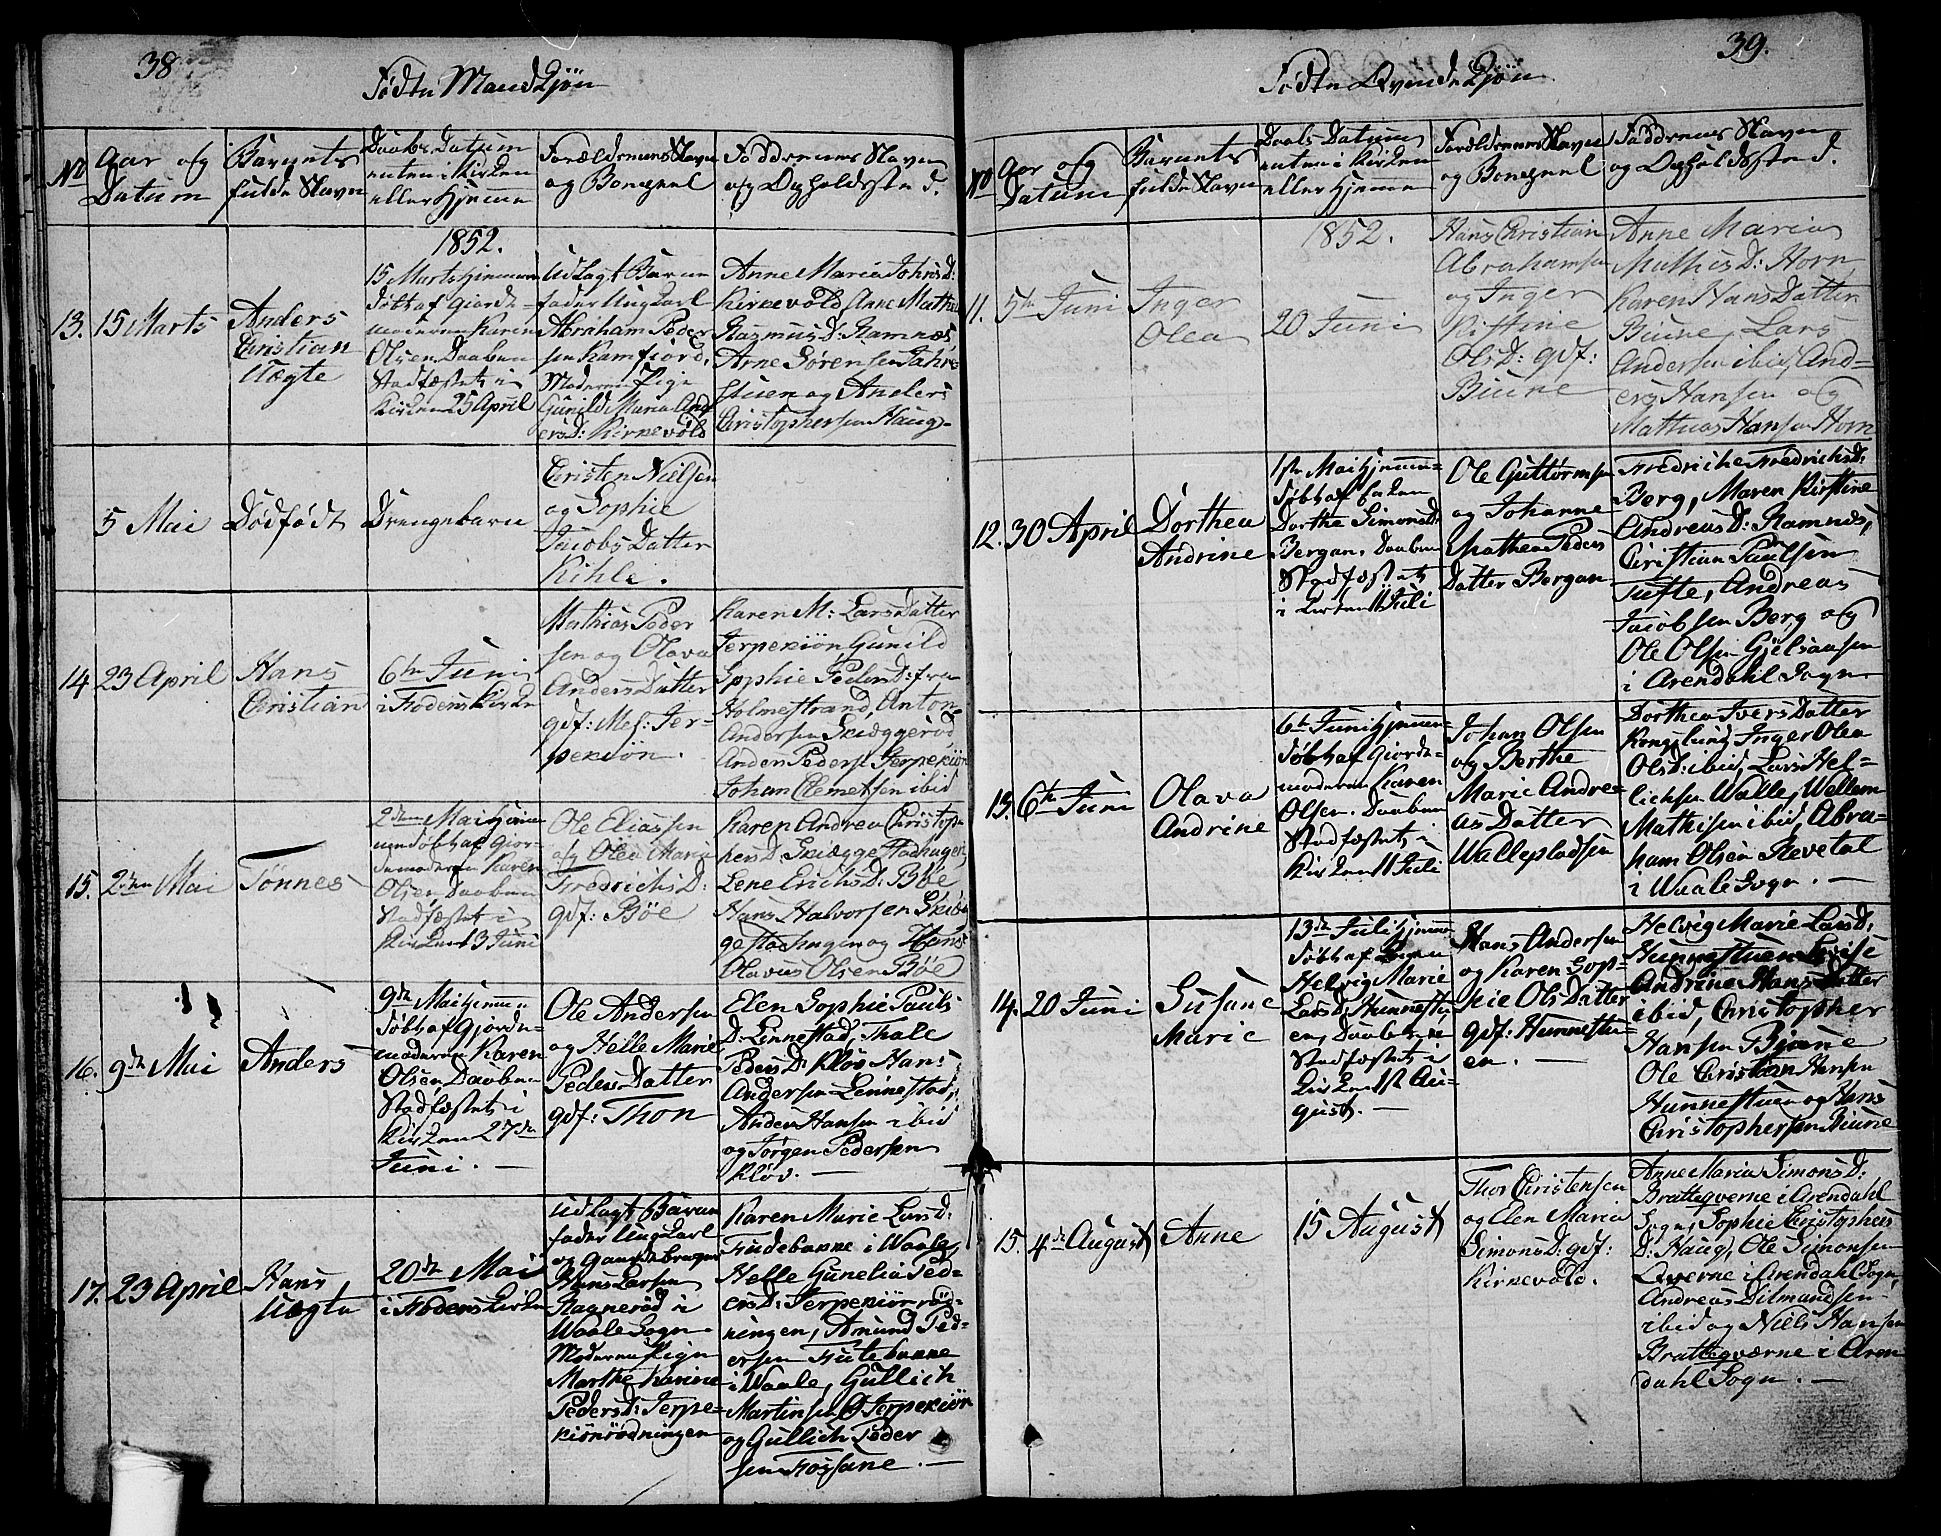 38
Fødte Mandkjøn
No
Aar og
Datum
Barnets
fulde Navn
Daabs Datum
enten i Kirken
eller Hjemme
Forældrenes Navn
og Bopæl
Faddrenes Navn
og Opholdssted.
1852.
13.
15 Marts
Anders
Christian
Uægte
15 Marts hjemme
døbt af Giorde-
moderen Karen
Olsen, Daaben
Stadfæstet i
Kirken 25 April
Udlagt Barne
fader Ungkarl
Abraham Peder
sen Ramfjord,
Moderen Pige
Gunild Maria And
ersD: Kirkevold
Anne Maria JohnsD:
Kirkevold, Anne Mathea
RasmusD: Ramnæs,
Arne Sørensen Jahre
stuen og Anders
Christophersen Haug-
5 Mai
Dødfødt
Drengebarn
Christen Nielsen
og Sophie
Jacobs Datter
Kihle.
14
23 April
Hans
Christian
6te Juni
i Hodens Kirke
Mathias Peder
sen og Olava
Anders Datter
gdf: Mel: Jer-
pekiøn.
Karen M: Lars Datter
Jerpekiøn, Gunild
Sophie PedersD: fra
Holmestrand, Anton
Andersen Skiæggerød
Anders Peders Jerpekiøn
Johan Clemetsen ibid
15.
2den Mai
Tønnes
2den Mai hjem
men døbt af Gior-
demoderen Karen
Olsen Daaben
Stadfæstet i
Kirken 13 Juni
Ole Eliassen
og Olea Maria
FredrichsD:
gdf: Bøe
Karen Andrea Christop-
hersD: Skiæggestadhagen
Lene ErichsD: Bøe
Hans Halvorsen Skiæg
gestadhagen og Hans
Olavus Olsen Bøe
16.
9de Mai
Anders
9de Mai hjemme
døbt af Gjorde-
moderen Karen
Olsen, Daaben
Stadfæstet i
Kirken 27de
Juni. —
Ole Andersen
og Helle Marie
Peders Datter
gdf: Thon
Elen Sophie Pauls
D: Linnestad, Thale
PedersD: Kløv Hans
Andersen Linnestad,
Anders Hansen ibid
og Jørgen Pedersen
Kløv. —
17.
23 April
Hans
Uægte
20de Mai
i Hodens Kirke
Udlagt Barne
fader Ungkarl
og Gaardebruger
Hans Larsen
Ragnerød i
Waale Sogn
Moderen Pige
Marthe Karine
PedersD: Jerpe-
kiønrødningen
Karen Marie LarsD:
Futebakke i Waale,
Helle Gunelia Ped-
ersD: Jerpekiønrød-
ningen, Amund Ped-
ersen Futebakke
i Waale, Gullich
Martinsen Ø Jerpekiøn
og Gullich Peder
sen Fossane. —
39.
Fødte Qvindekjøn
No
Aar og
Datum
Barnets
fulde Navn
Daabs Datum
enten i Kirken
eller Hjemme
Forældrenes Navn
og Bopæl
Faddrenes Navn
og Opholdssted.
1852.
11.
5te Juni
Inger
Olea
20 Juni
Hans Christian
Abrahamsen
og Inger
Kistine
OlsD: gdf:
Biune
Anne Maria
MathisD: Horn,
Karen Hans Datter
Biune, Lars
Andersen ibid, And-
ers Hansen og
Mathias Hansen Horn
12.
30 April
Dorthea
Andrine
1ste Mai hjemme-
døbt af Enken
Dorthe SimonsD:
Bergan. Daaben
Stadfæstet
i Kirken 11 Juli
Ole Guttormsen
og Johanne
Mathea Peders
Datter Bergan.
Fredriche FredrichsD:
Berg, Maren Kirstine
AndreasD: Ramnæs,
Christian Paulsen
Tufte, Andreas
Jacobsen Berg og
Ole Olsen Gjelsaasen
i Arendahl Sogn
13.
6te Juni
Olava
Andrine
6te Juni hjemme-
døbt af Giorde-
moderen Karen
Olsen. Daaben
Stadfæstet i
Kirken 11 Juli
Johan Olsen
og Berthe
Marie Andre-
as Datter
Walleplassen
Dorthea Ivers Datter
Kongslund, Inger Olea
OlsD: ibid, Lars Hel-
lichsen Walle, Wellem
Mathisen ibid, Abra-
ham Olsen Revetal
i Waale Sogn. —
14.
20 Juni
Susane
Marie
13de Juli hjemme
døbt af
Helvig Marie
LarsD: Hunnestu
en, Daaben
Stadfæstet i
Kirken 1st Au-
gust. —
Hans Andersen
og Karen Sop-
hie Ols Datter
gdf: Hunnestu-
en. —
Helvig Marie LarsD:
Hunnestuen Lovise
Andrine Hans Datter
ibid, Christopher
Hansen Bjune
Ole Christian Hansen
Hunnestuen og Hans
Christophersen Biune
15.
4de August
Anne
15 August
Thor Christensen
og Elen Maria
SimonsD: gdf:
Kirkevold.
Anne Maria SimonsD:
Bratteqverne i Arendahl
Sogn, Sophie Christophers
D: Haug, Ole Simonsen
Qverne i Arendahl Sogn,
Andreas Dilmandsen
ibid og Niels Hansen
Bratteqværne i Aren
dahl Sogn. —